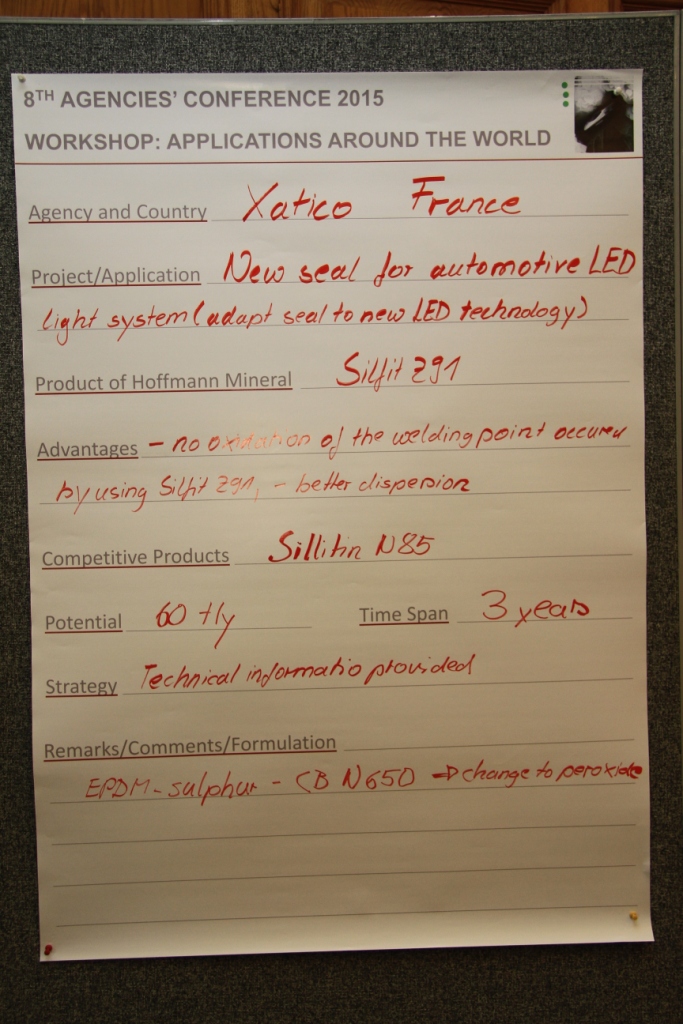 8TH AGENCIES' CONFERENCE 2015
WORKSHOP: APPLICATIONS AROUND THE WORLD
Agency and Country Xatico France
Project/Application New seal for automotive LED
light system (adapt seal to new LED technology)
Product of Hoffmann Mineral Silfit Z91
Advantages - no oxidation of the welding point occured
by using Silfit Z91, - better dispersion
Competitive Products Sillitin N85
Potential 60 t/y Time Span 3 years
Strategy Technical informatio provided
Remarks/Comments/Formulation
EPDM - sulphur - CB N650 ⇒ change to peroxide